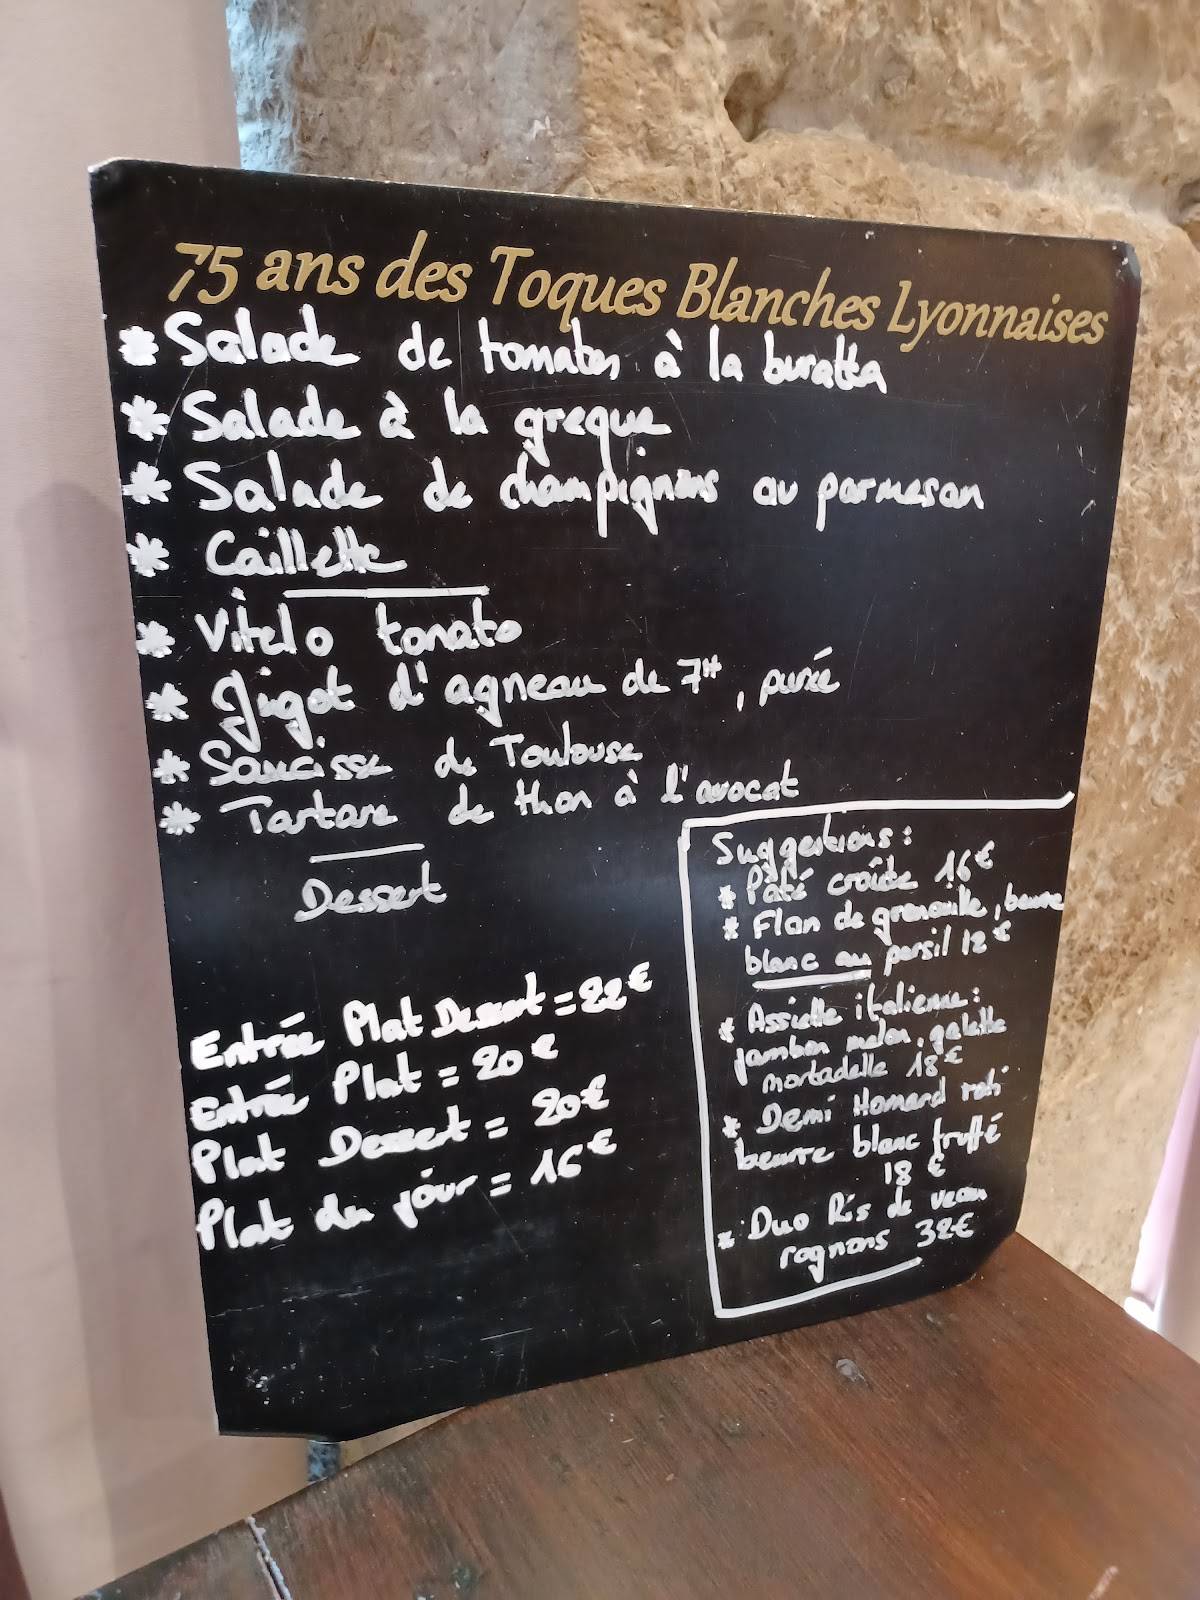 75 ans des Toques Blanches Lyonnaises
* Salade de tomates à la buratta
* Salade à la greque
* Salade de champignons au parmesan
* Caillette
* Vitelo tonato
* Gigot d'agneau de 7H, purée
* Saucisse de Toulouse
* Tartare de thon à l'avocat
Dessert
Entrée Plat Dessert = 22€
Entrée Plat = 20€
Plat Dessert = 20€
Plat du jour = 16€
Suggestions :
* Pâté croûte 16€
* Flan de grenouille, beurre
blanc au persil 12€
* Assiette italienne :
jambon melon, galette
mortadelle 18€
* Demi Homard roti
beurre blanc truffé
18 €
* Duo Ris de veau
rognons 32€